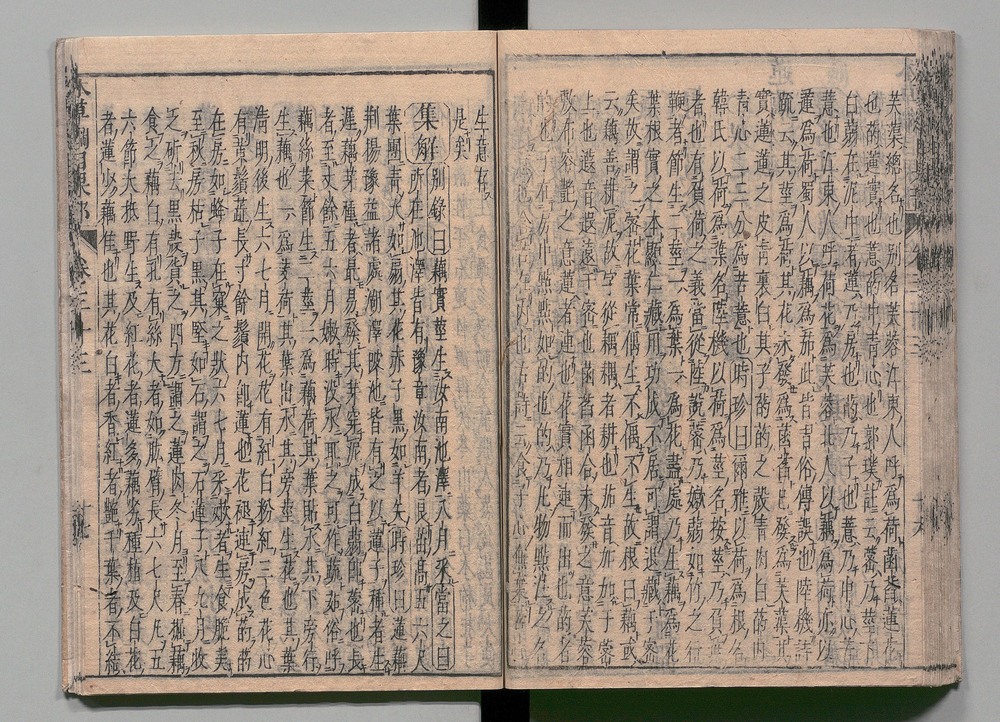 芙渠總名也別名芙蓉江東人呼為荷菡萏蓮花
也菂蓮實也薏菂中青心也郭璞註云蔤乃莖下
白蒻在泥中者蓮乃房也菂乃子也薏乃中心苦
薏也江東人呼荷花為芙蓉北人以藕為荷亦以
蓮為荷蜀人以藕為茄此皆習俗傳誤也陸機詩
疏云其莖為荷其花未發為菡萏已發為芙蕖其
實蓮蓮之皮青裏白其子菂菂之殼青肉白菂內
青心二三分為苦薏也時珍曰爾雅以荷為根名
韓氏以荷為葉名陸機以荷為莖名按莖乃負葉
者也有負荷之義當從陸說蔤乃嫩蒻如竹之行
鞭者節生二莖一為葉一為花盡處乃生藕為花
葉根實之本顯仁藏用功成不居可謂退藏于密
矣故謂之蔤花葉常偶生不偶不生故根曰藕或
云藕善耕泥故字從耦耦者耕也茄音加加于蔤
上也蕸音遐遠于密也菡萏函合未發之意芙蓉
敷布容艷之意蓮者連也花實相連而出也菂者
的也子在房中點點如的也的乃凡物點注之名
也含苦在內也古詩云食子心無棄
生意存
是矣
集解別錄曰藕實莖生汝南池澤八月采當之曰
所在池澤皆有豫章汝南者良苗高五六尺
葉團青大如扇其花赤子黑如羊矢時珍曰蓮藕
荊揚豫益諸處湖澤陂池皆有之以蓮子種者生
遲藕芽種者最易發其芽穿泥成白蒻即蔤也長
者至丈餘五六月嫩時沒水取之可作蔬茹俗呼
藕絲菜節生二莖一為藕荷其葉貼水其下旁行
生藕也一為芰荷其葉出水其旁莖生花也其葉
清明後生六七月開花花有紅白粉紅三色花心
有黃鬚蕊長寸餘鬚內即蓮也花褪連房成菂菂
在房如蜂子在窠之狀六七月采嫩者生食脆美
至秋房枯子黑其堅如石謂之石蓮子八九月收
之斫去黑殼貨之四方謂之蓮肉冬月至春掘藕
食之藕白有孔有絲大者如肱臂長六七尺凡五
六節大抵野生及紅花者蓮多藕劣種植及白花
者蓮少藕佳也其花白者香紅者艷千葉者不結
本草綱目果部 卷三十三